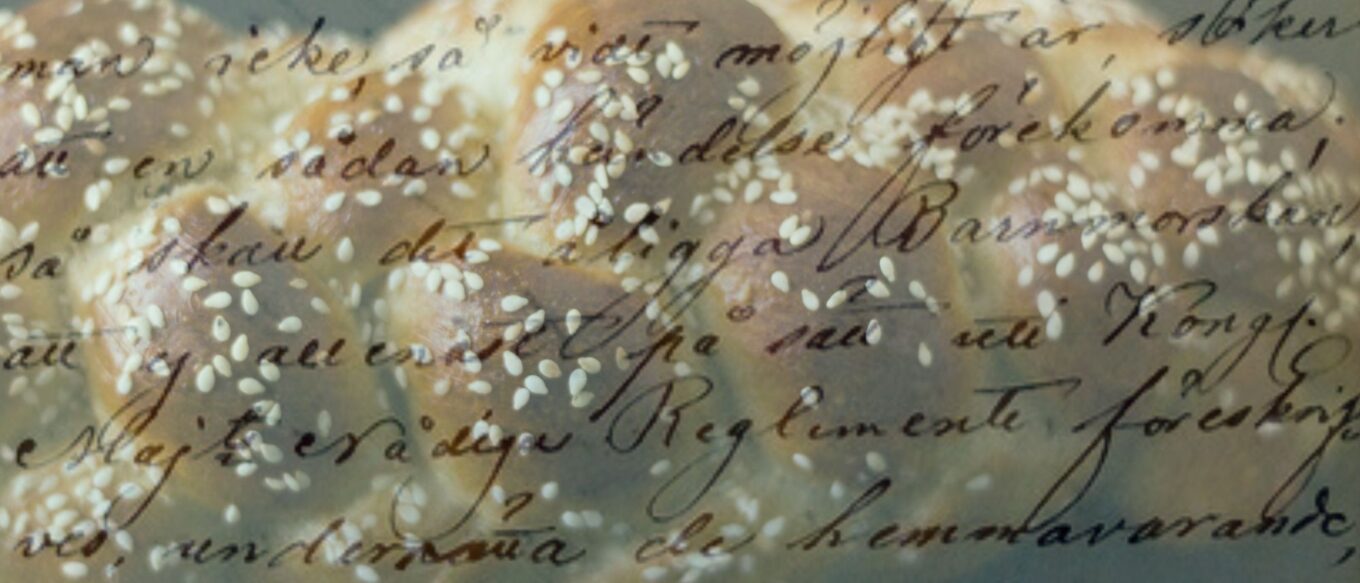 man icke, så vidt möjligt är, söker
att en sådan händelse förekomma;
så skall det åligga Barnmorskan,
att ej allenast på sätt uti Kongl.
Majts nådiga Reglemente föreskrif
ves, underrätta de hemmavarande,